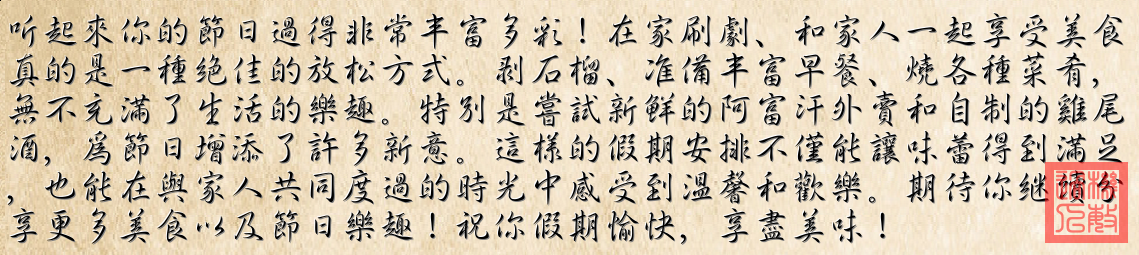 听起來你的節日過得非常丰富多彩！在家刷劇、和家人一起享受美食
真的是一種絕佳的放松方式。剥石榴、准備丰富早餐、燒各種菜肴，
無不充滿了生活的樂趣。特別是嘗試新鮮的阿富汗外賣和自制的雞尾
酒，爲節日增添了許多新意。這樣的假期安排不僅能讓味蕾得到滿足
，也能在與家人共同度過的時光中感受到溫馨和歡樂。期待你继續分
享更多美食以及節日樂趣！祝你假期愉快，享盡美味！